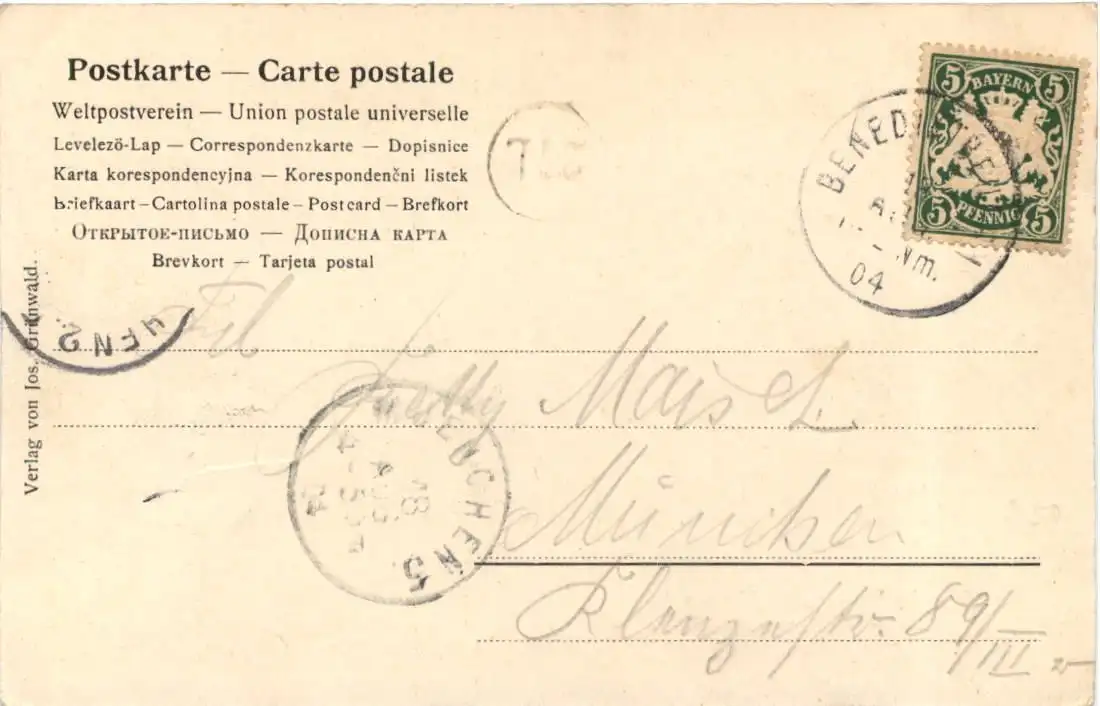 Postkarte — Carte postale
Weltpostverein — Union postale universelle
Levelezö-Lap — Correspondenzkarte — Dopisnice
Karta korespondencyjna — Korespondenčni listek
Briefkaart – Cartolina postale – Post card – Brefkort
Открытое-письмо — Дописна карта
Brevkort — Tarjeta postal
5 BAYERN 5
5 PFENNIG 5
Nm.
04
Verlag von Jos. Grünwald.
Maisel
München
MUENCHEN 5.
18
AUG
Klenzestr. 89/III